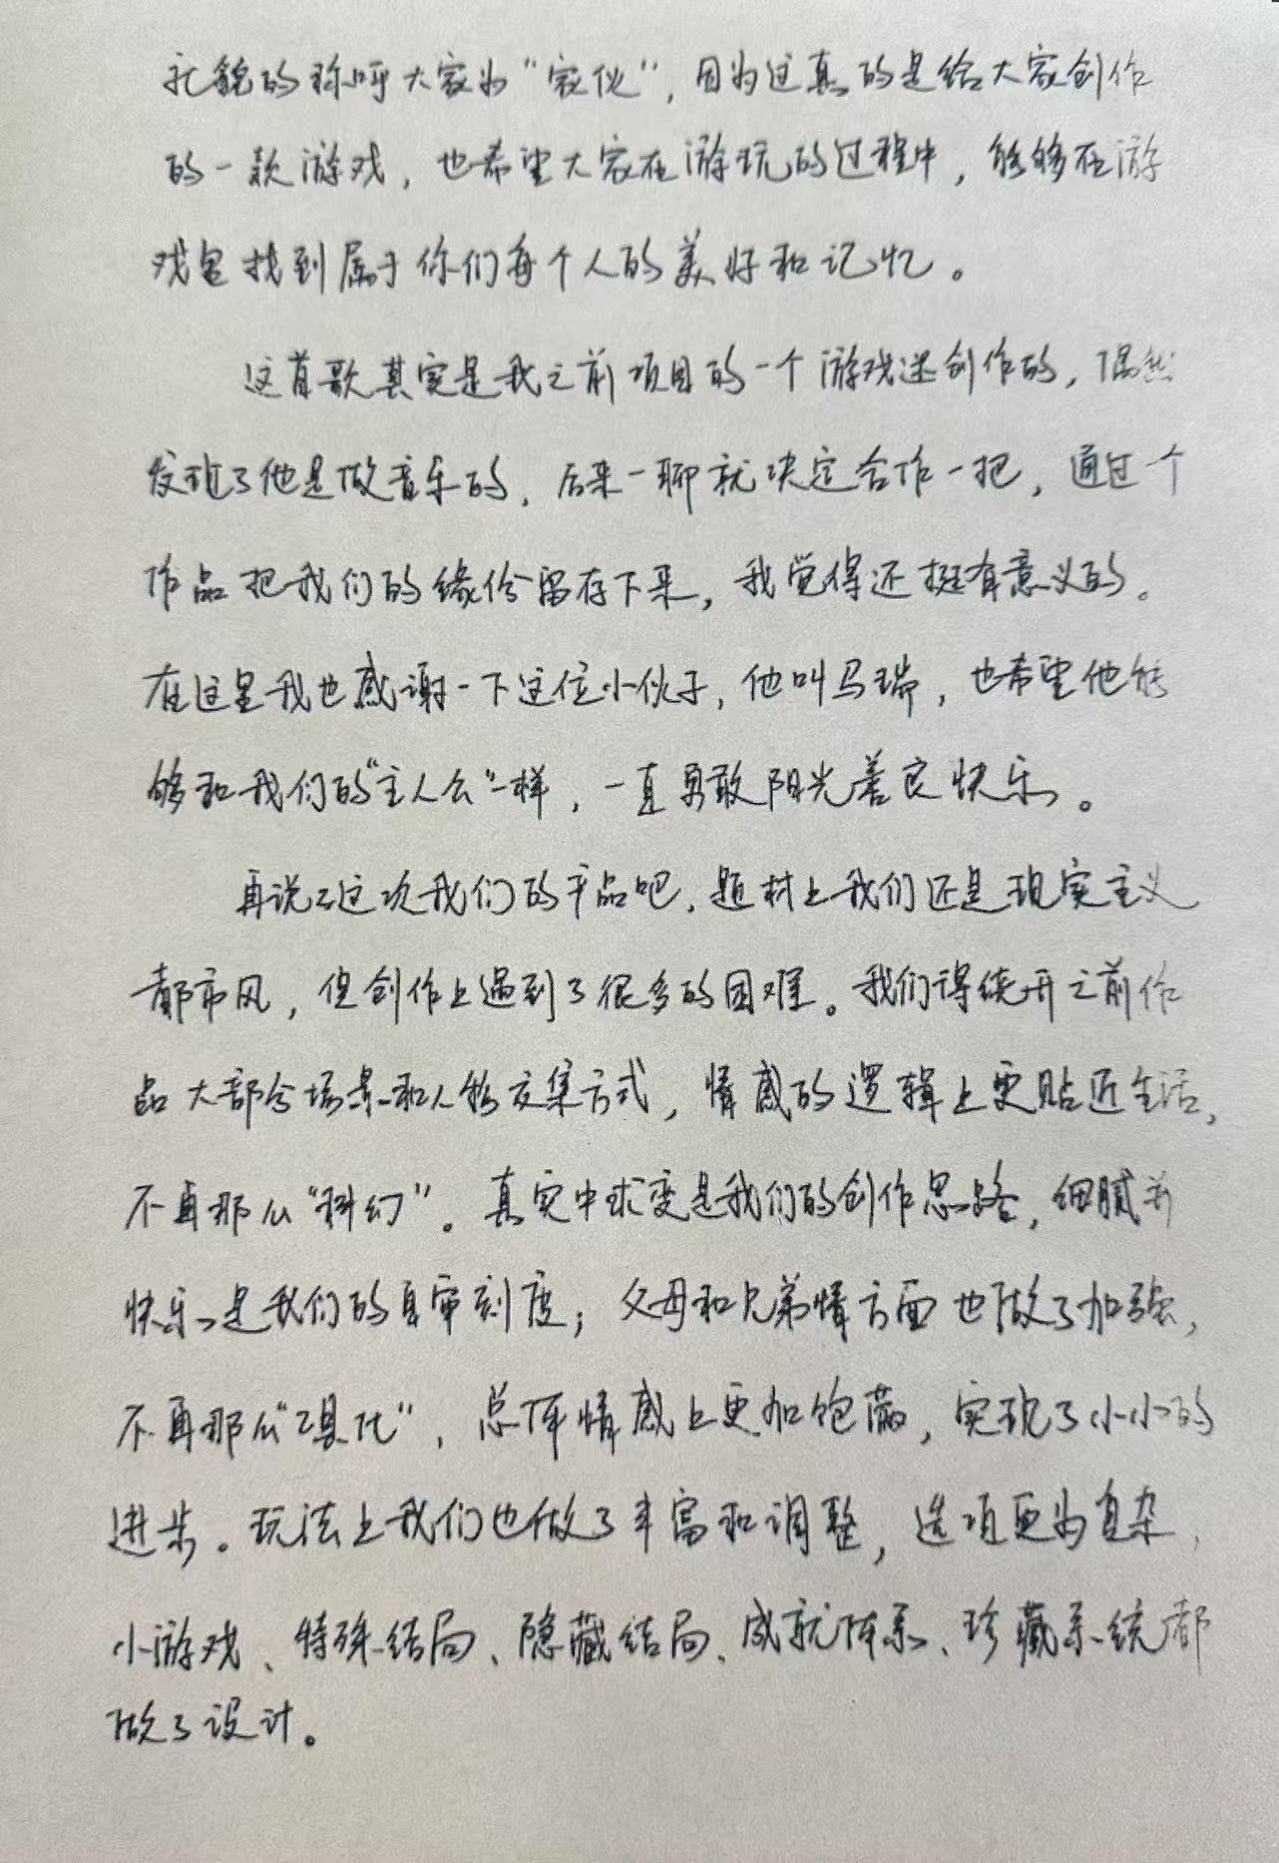 礼貌的称呼大家为“家伙”，因为这真的是给大家创作
的一款游戏，也希望大家在游玩的过程中，能够在游
戏里找到属于你们每个人的美好和记忆。
这首歌其实是我之前项目的一个游戏迷创作的，偶然
发现了他是做音乐的，后来一聊就决定合作一把，通过一个
作品把我们的缘份留存下来，我觉得还挺有意义的。
在这里我也感谢一下这位小伙子，他叫马瑞，也希望他能
够和我们的“主人公”一样，一直勇敢阳光善良快乐。
再说说这次我们的产品吧，题材上我们还是现实主义
都市风，但创作上遇到了很多的困难。我们得绕开之前作
品大部分场景和人物交集方式，情感的逻辑上更贴近生活，
不再那么“科幻”。真实中求变是我们的创作思路，细腻并
快乐是我们的自审刻度；父母和兄弟情方面也做了加强，
不再那么“工具化”，总体情感上更加饱满，实现了小小的
进步。玩法上我们也做了丰富和调整，选项更为复杂，
小游戏、特殊结局、隐藏结局、成就体系、珍藏系统都
做了设计。